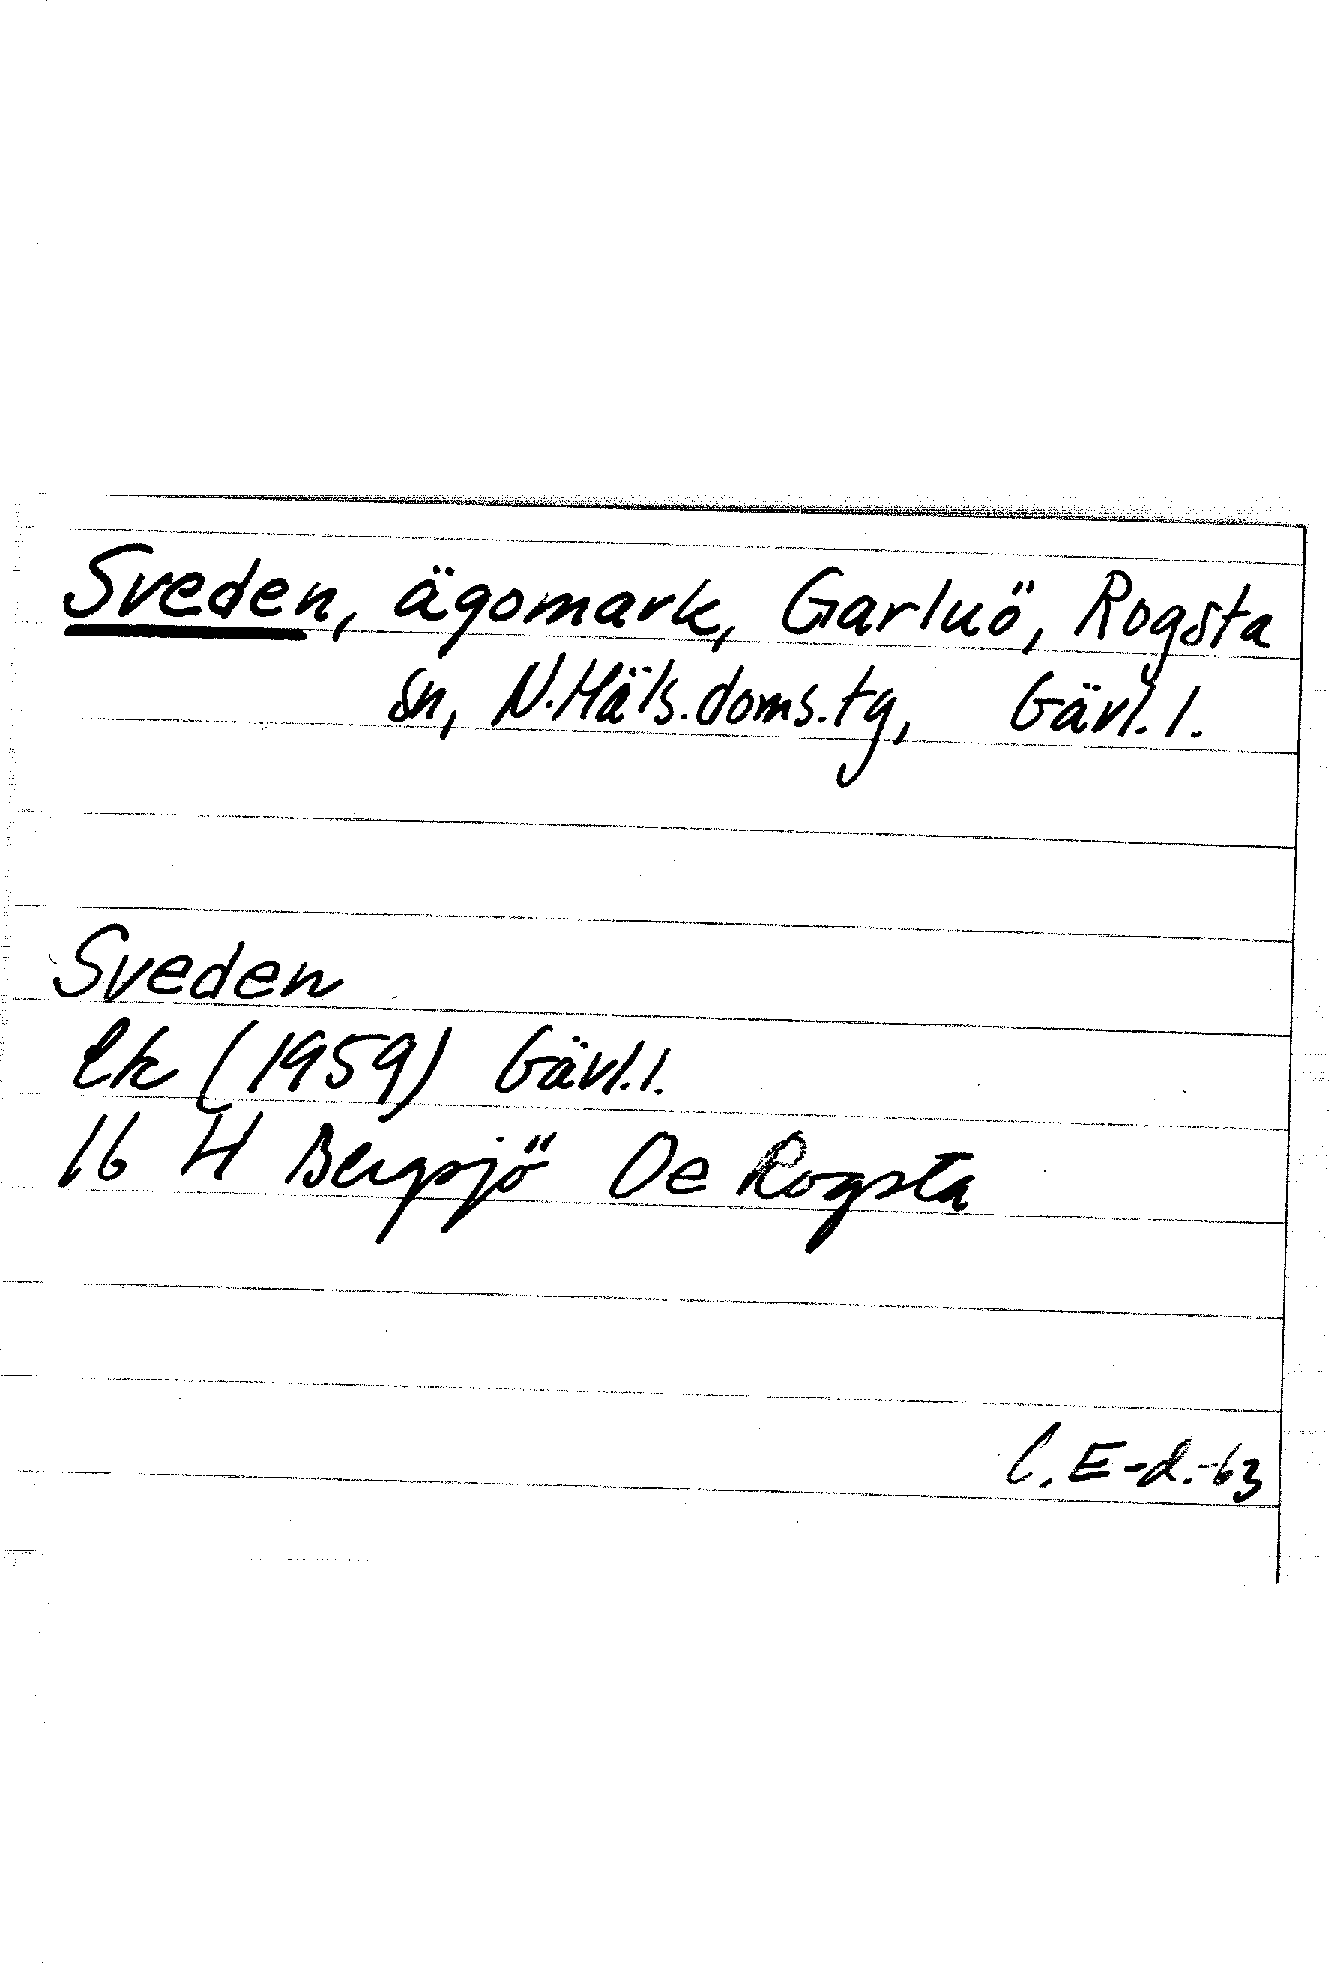 Sveden, ägomark, Garluö, Rogsta
sn, N.Häls.doms.tg, Gävl.l.
Sveden
Ek (1959) Gävl.l.
16 H Bergsjö Oe Rogsta
C.E-d.-63